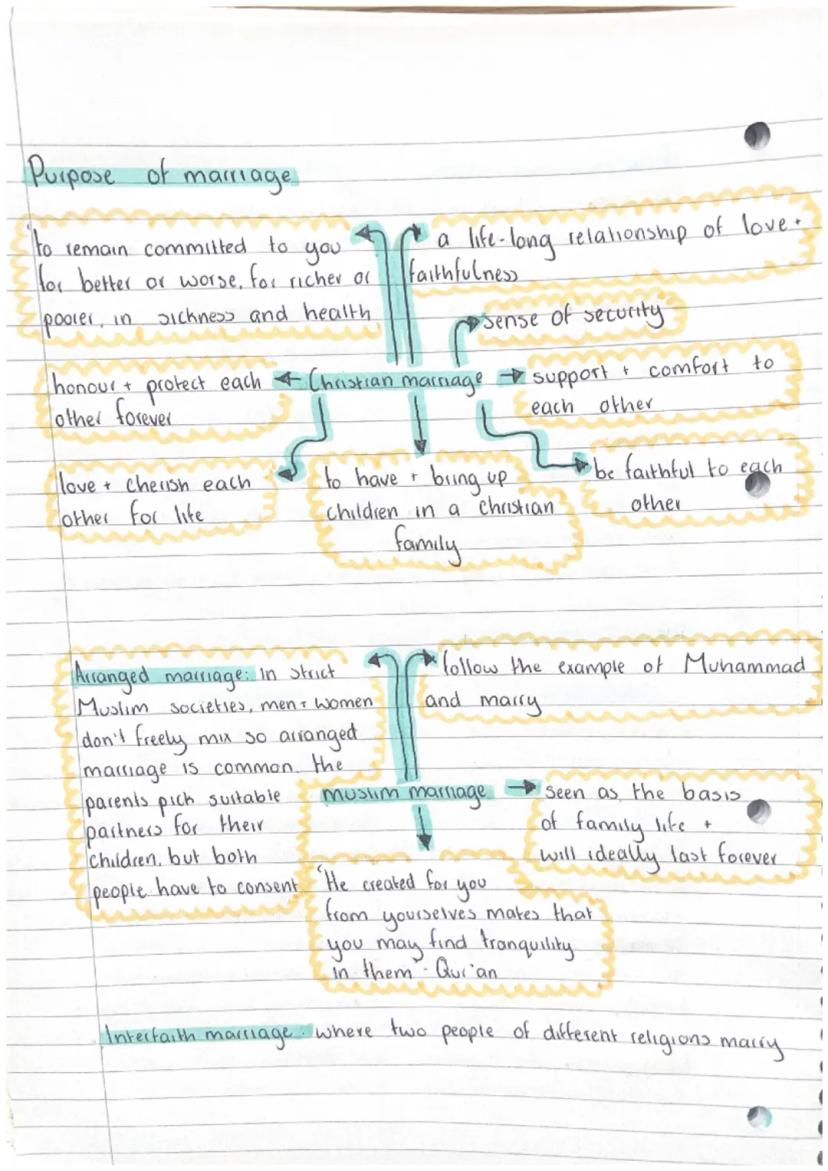 Purpose of marriage
'to remain committed to you
for better or worse, for richer or
poorer, in sickness and health
a life-long relationship of love +
faithfulness
sense of security
honour + protect each
other forever
Christian marriage
support + comfort to
each other
love + cherish each
other for life
to have + bring up
children in a christian
family
be faithful to each
other
Arranged marriage: In strict
Muslim societies, men + women
don't freely mix so arranged
marriage is common. the
parents pick suitable
partners for their
children, but both
people have to consent
follow the example of Muhammad
and marry
muslim marriage
seen as the basis
of family life +
will ideally last forever
'He created for you
from yourselves mates that
you may find tranquility
in them - Qur'an
Interfaith marriage: where two people of different religions marry